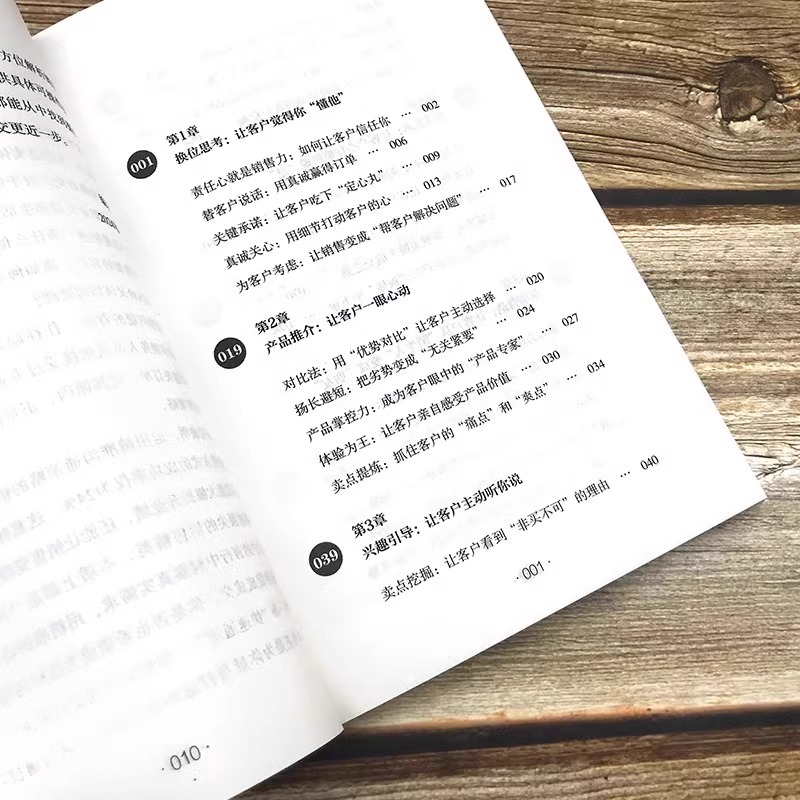 方位解
供具体可
都能从中找到
交更近一步。
010
001
第1章
换位思考：让客户觉得你“懂他”
责任心就是销售力：如何让客户信任你 … 002
替客户说话：用真诚赢得订单 … 006
关键承诺：让客户吃下“定心丸” … 009
真诚关心：用细节打动客户的心 … 013
为客户考虑：让销售变成“帮客户解决问题” … 017
019
第2章
产品推介：让客户一眼心动
对比法：用“优势对比”让客户主动选择 … 020
扬长避短：把劣势变成“无关紧要” … 024
产品掌控力：成为客户眼中的“产品专家” … 027
体验为王：让客户亲自感受产品价值 … 030
卖点提炼：抓住客户的“痛点”和“爽点” … 034
039
第3章
兴趣引导：让客户主动听你说
卖点挖掘：让客户看到“非买不可”的理由 … 040
001